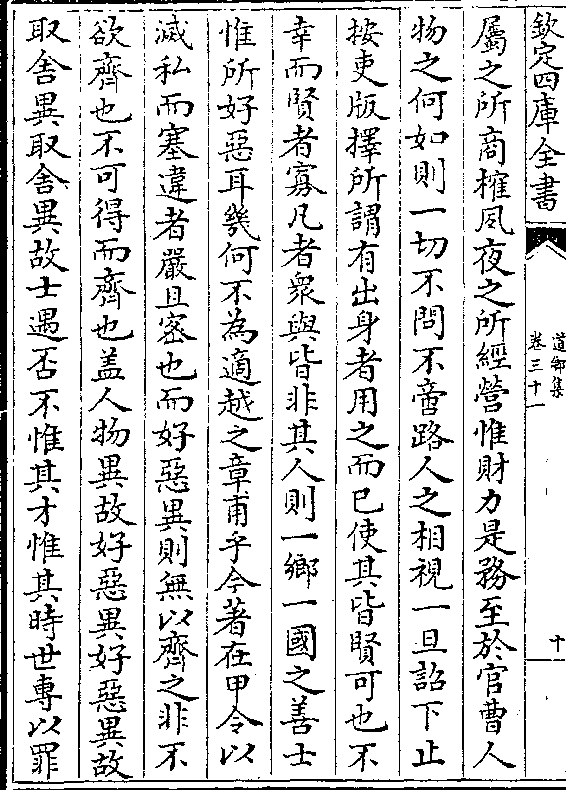 欽定四庫全書
道鄉集
卷三十一
十
屬之所商搉夙夜之所經營惟財力是務至於官曹人
物之何如則一切不問不啻路人之相視一旦詔下止
按吏版擇所謂有出身者用之而已使其皆賢可也不
幸而賢者寡凡者衆與皆非其人則一鄉一國之善士
惟所好惡耳幾何不為適越之章甫乎今著在甲令以
滅私而塞違者嚴且宻也而好惡異則無以齊之非不
欲齊也不可得而齊也盖人物異故好惡異好惡異故
取舍異取舍異故士遇否不惟其才惟其時世專以罪